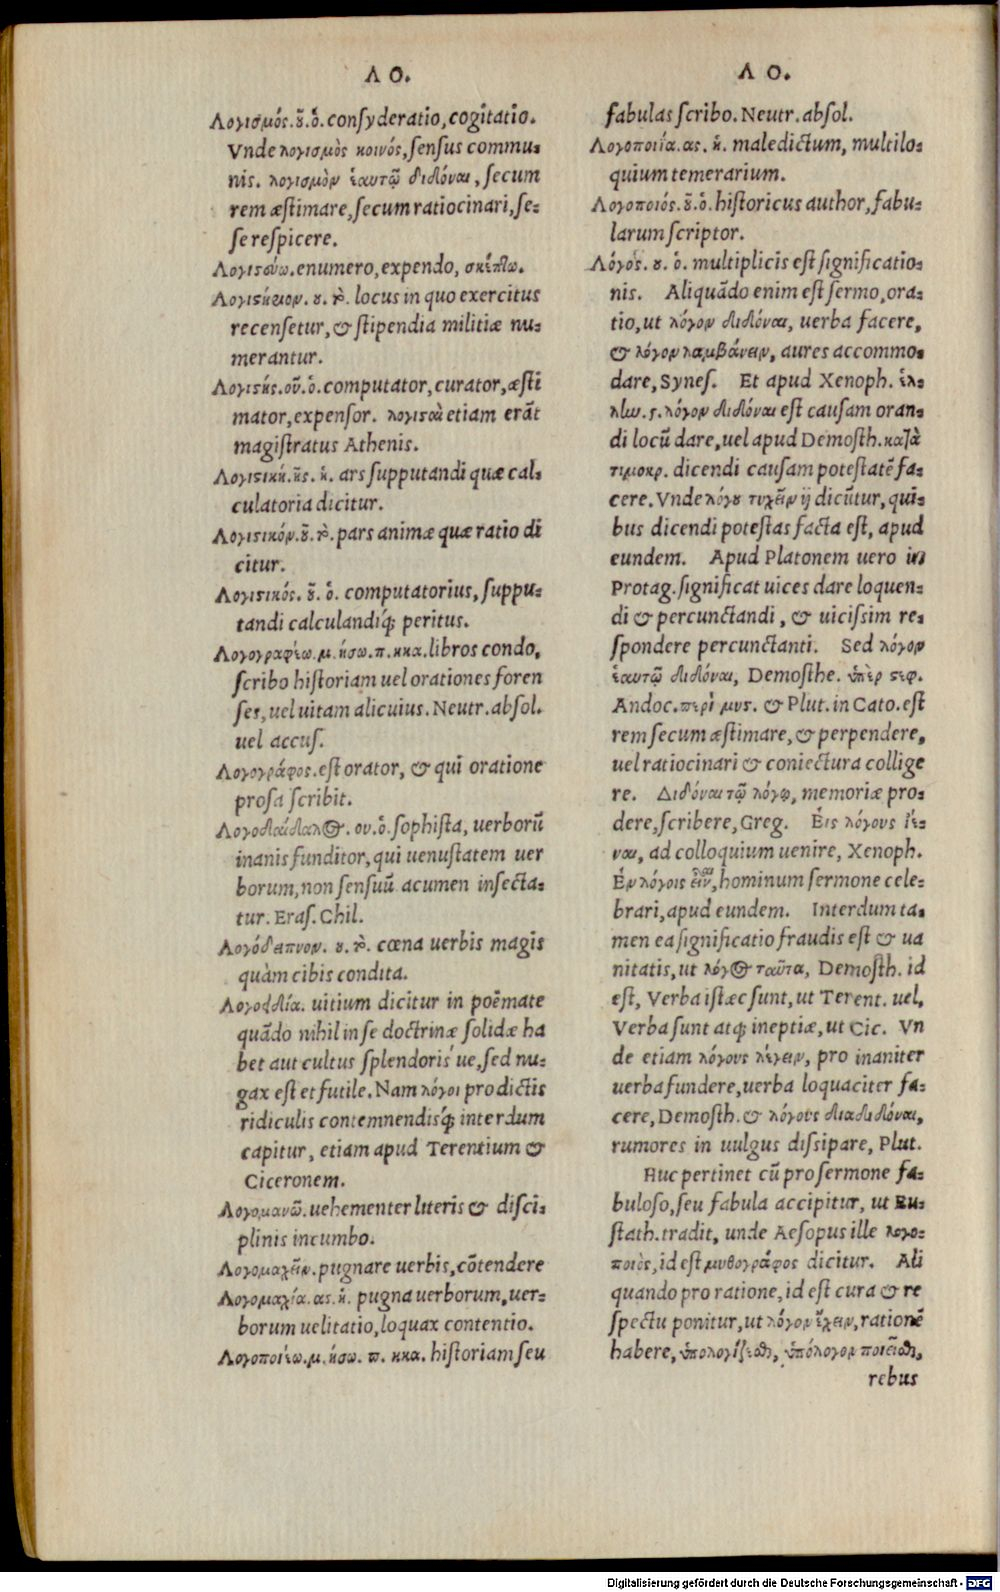 ΛΟ.
Λογισμός.ȣ̃.ὁ. consyderatio, cogitatio.
Vnde λογισμὸς κοινός, sensus commu-
nis. λογισμὸν ἑαυτῷ διδόναι, secum
rem æstimare, secum ratiocinari, se-
se respicere.
Λογιστεύω. enumero, expendo, σκέπτω.
Λογιστήριον. ȣ. τὸ. locus in quo exercitus
recensetur, & stipendia militiæ nu-
merantur.
Λογιστής. οῦ. ὁ. computator, curator, æsti
mator, expensor. λογισταὶ etiam erāt
magistratus Athenis.
Λογιστική. ῆς. ἡ. ars supputandi quæ cal-
culatoria dicitur.
Λογιστικόν. ȣ̃. τὸ. pars animæ quæ ratio di
citur.
Λογιστικός. ȣ̃. ὁ. computatorius, suppu-
tandi calculandiq́; peritus.
Λογογραφέω. μ. ήσω. π. ηκα. libros condo,
scribo historiam uel orationes foren
ses, uel uitam alicuius. Neutr. absol.
uel accus.
Λογογράφος. est orator, & qui oratione
prosa scribit.
Λογοδαίδαλος. ου. ὁ. sophista, uerborū
inanis funditor, qui uenustatem uer
borum, non sensuū acumen insecta-
tur. Eras. Chil.
Λογόδειπνον. ȣ. τὸ. cœna uerbis magis
quàm cibis condita.
uitium dicitur in poëmate
quādo nihil in se doctrinæ solidæ ha
bet aut cultus splendoris ue, sed nu-
gax est et futile. Nam λόγοι pro dictis
ridiculis contemnendisq́; interdum
capitur, etiam apud Terentium &
Ciceronem.
Λογομανῶ. uehementer literis & disci-
plinis incumbo.
Λογομαχεῖν. pugnare uerbis, cōtendere
Λογομαχία. ας. ἡ. pugna uerborum, uer-
borum uelitatio, loquax contentio.
Λογοποιέω. μ. ήσω. π. ηκα. historiam seu
ΛΟ.
fabulas scribo. Neutr. absol.
Λογοποιΐα. ας. ἡ. maledictum, multilo-
quium temerarium.
Λογοποιός. ȣ̃. ὁ. historicus author, fabu-
larum scriptor.
Λόγος. ȣ. ὁ. multiplicis est significatio-
nis. Aliquādo enim est sermo, ora-
tio, ut λόγον διδόναι, uerba facere,
& λόγον λαμβάνειν, aures accommo-
dare, Synes. Et apud Xenoph. ἑλ-
λην. ς. λόγον διδόναι est causam oran-
di locū dare, uel apud Demosth. κατὰ
τιμοκρ. dicendi causam potestatē fa-
cere. Vnde λόγȣ τυχεῖν ij dicūtur, qui-
bus dicendi potestas facta est, apud
eundem. Apud Platonem uero in
Protag. significat uices dare loquen-
di & percunctandi, & uicissim re-
spondere percunctanti. Sed λόγον
ἑαυτῷ διδόναι, Demosthe. ὑπὲρ στεφ.
Andoc. περὶ μυς. & Plut. in Cato. est
rem secum æstimare, & perpendere,
uel ratiocinari & coniectura collige
re. Διδόναι τῷ λόγῳ, memoriæ pro-
dere, scribere, Greg. Εἰς λόγους ἰέ-
ναι, ad colloquium uenire, Xenoph.
Ἐν λόγοις εἶναι, hominum sermone cele-
brari, apud eundem. Interdum ta-
men ea significatio fraudis est & ua
nitatis, ut λόγος ταῦτα, Demosth. id
est, Verba istæc sunt, ut Terent. uel,
Verba sunt atq; ineptiæ, ut Cic. Vn
de etiam λόγους λέγειν, pro inaniter
uerba fundere, uerba loquaciter fa-
cere, Demosth. & λόγους διαδιδόναι,
rumores in uulgus dissipare, Plut.
Huc pertinet cū pro sermone fa-
buloso, seu fabula accipitur, ut Eu-
stath. tradit, unde Aesopus ille λογο-
ποιὸς, id est μυθογράφος dicitur. Ali
quando pro ratione, id est cura & re
spectu ponitur, ut λόγον ἔχειν, rationē
habere, ὑπολογίζεσθαι, ὑπόλογον ποιεῖσθαι,
rebus
Digitalisierung gefördert durch die Deutsche Forschungsgemeinschaft - DFG